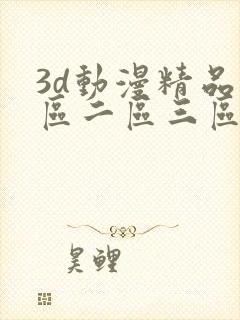 3d動漫精品
區二區三區
昊鲤